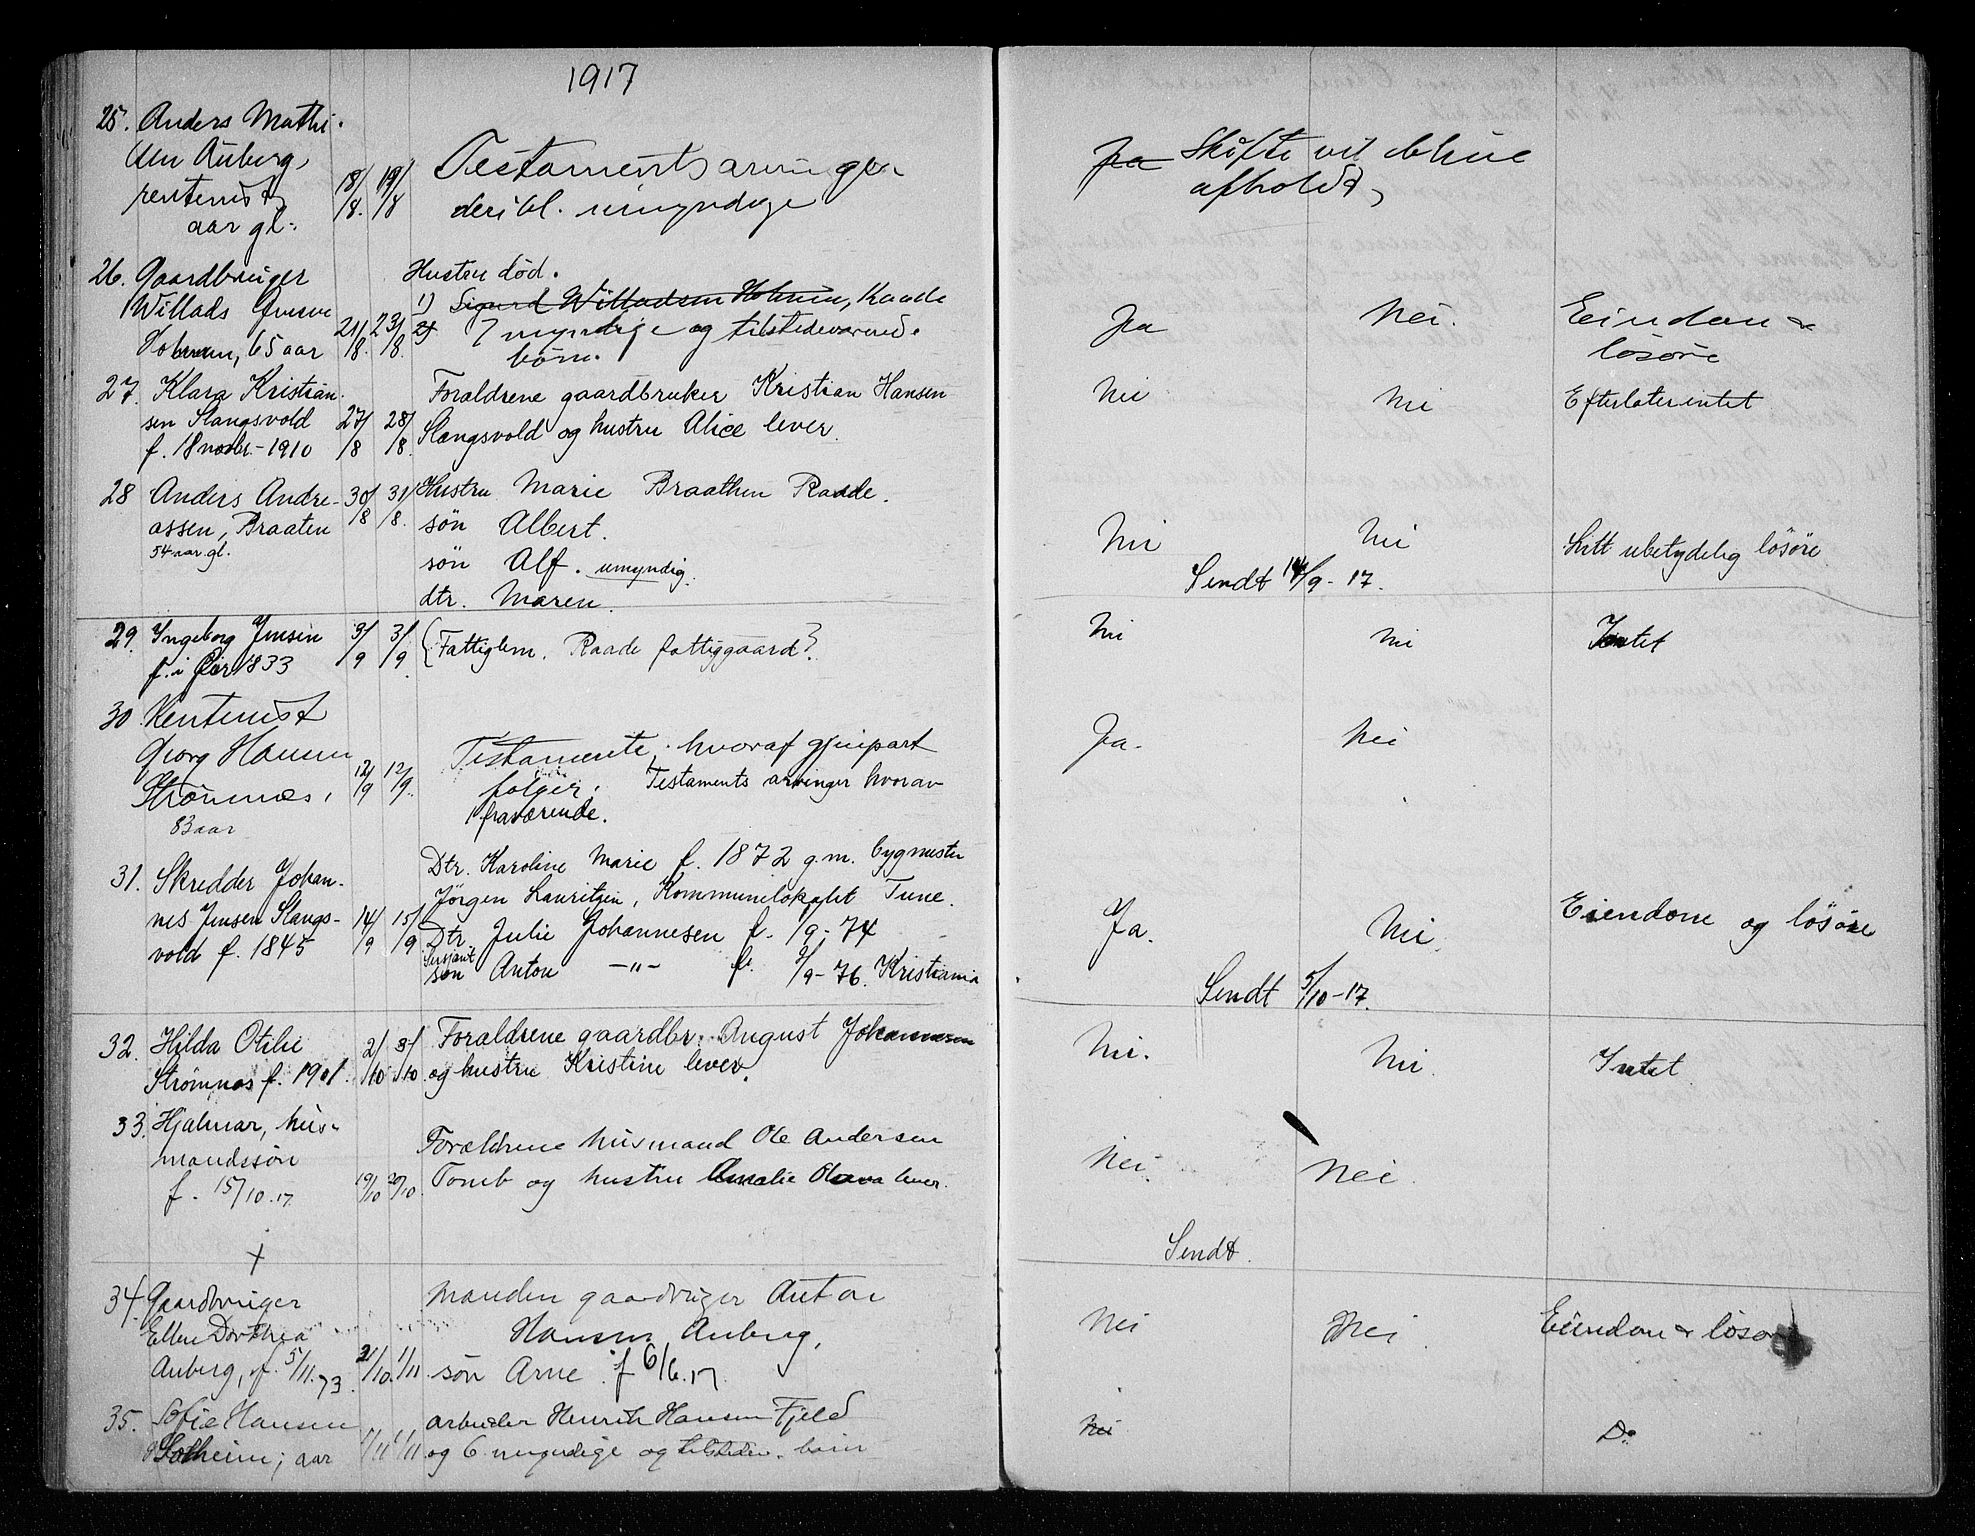 1917
25. Anders Mathi-
sen Auberg,
rentenist
aar gl.
18/8. 19/8
Testamentsarvinger
deribl. umyndige
Ja Skifte vil blive
afholdt,
26. Gaardbruger
Willads Jensen
65 aar
21/8. 23/8.
Hustru død.
1) Sigurd Willadsen Holmen, Raade
2) 7 myndige og tilstedeværende
børn.
Ja Nei. Eiendom &
løsøre
27. Klara Kristian-
sen Slangsvold
f. 18 novbr. - 1910
27/8 28/8.
Forældrene gaardbruker Kristian Hansen
Slangsvold og hustru Alice lever.
Nei Nei Efterlater intet
28 Anders Andre-
assen, Braaten
54 aar gl.
30/8 31/8.
Hustru Marie Braathen Raade.
søn Albert.
søn Alf. umyndig.
dtr. Maren.
Nei Nei Litt ubetydelig løsøre
Sendt 14/9 - 17.
29. Ingeborg Jensen
f. i 1833
3/9 3/9.
(Fattiglem. Raade fattiggaard)
Nei Nei Intet
30. Rentenist
Georg Hansen
Strømnæs,
83 aar
12/9 12/9.
Testamente, hvoraf gjenpart
følger. Testaments arvinger hvorav
fraværende.
Ja. Nei
31. Skredder Johan-
nes Jensen Slangs-
vold f. 1845
14/9 15/9
Dtr. Karoline Marie f. 1872 g.m. bygmester
Jørgen Lauritzen, Kommunelokalet Tune.
Dtr. Julie Johannesen f. 1/9 - 74
Sersjant
søn Anton -"- f. 2/9 - 76. Kristiania
Ja. Nei. Eiendom og løsøre
Sendt 5/10 - 17.
32. Hilda Otilie
Strømnæs f. 1901.
2/10 3/10.
Forældrene gaardbr. August Johannesen
og hustru Kristine lever.
Nei. Nei. Intet.
33. Hjalmar, hus-
mandssøn
f. 15/10.17
19/10 20/10.
Forældrene husmand Ole Andersen
Tomb og hustru Amalie Olava lever.
Nei. Nei.
+
Sendt.
34. Gaardbruger
Ellen Dorthea
Auberg, f. 5/11.73.
31/10. 1/11.
Manden gaardbruger Anton
Hansen Auberg,
søn Arne f 6/6.17.
Nei Nei. Eiendom & løsøre
35. Sofie Hansen
Solheim; aar
1/11
arbeider Henrik Hansen Fjeld
og 6 myndige og tilstedev. børn
Nei Do